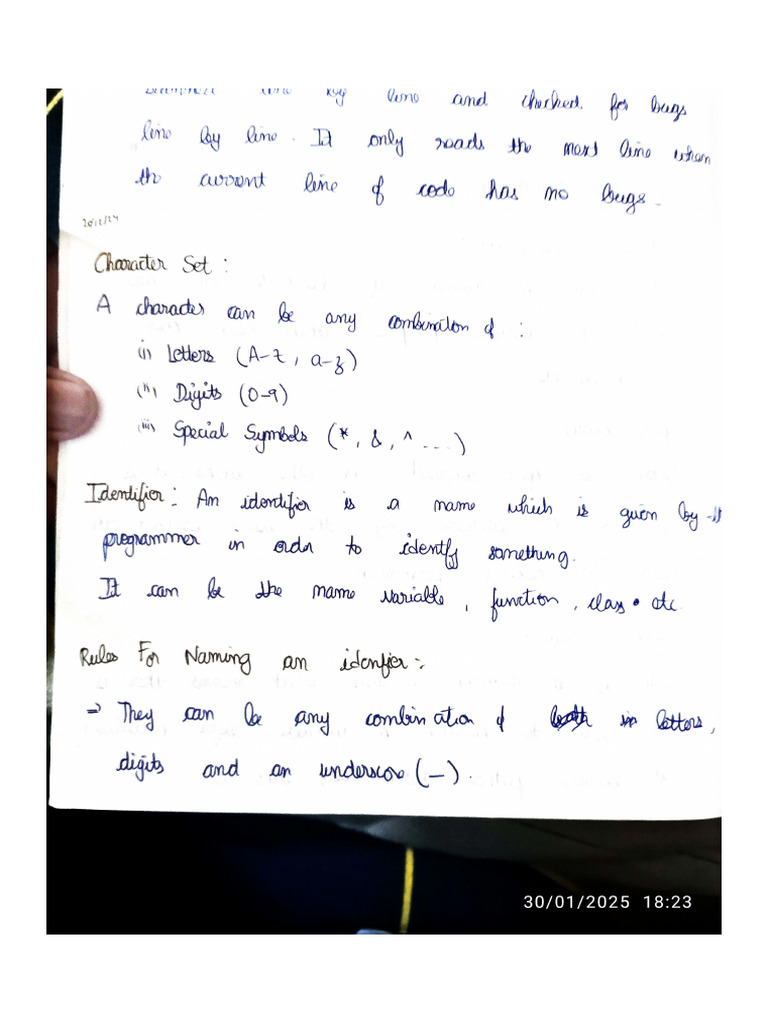 line by line and checked for bugs
line by line. It only reads the next line when
the current line of code has no bugs.
20/12/24
Character Set :
A character can be any combination of :
(i) Letters (A-Z, a-z)
(ii) Digits (0-9)
(iii) Special Symbols (*, &, ^ ....)
Identifier : An identifier is a name which is given by
programmer in order to identify something.
It can be the name variable, function, class. etc.
Rules For Naming an idenfier :-
⇒ They can be any combination of in letters,
digits and an underscore (_).
30/01/2025 18:23